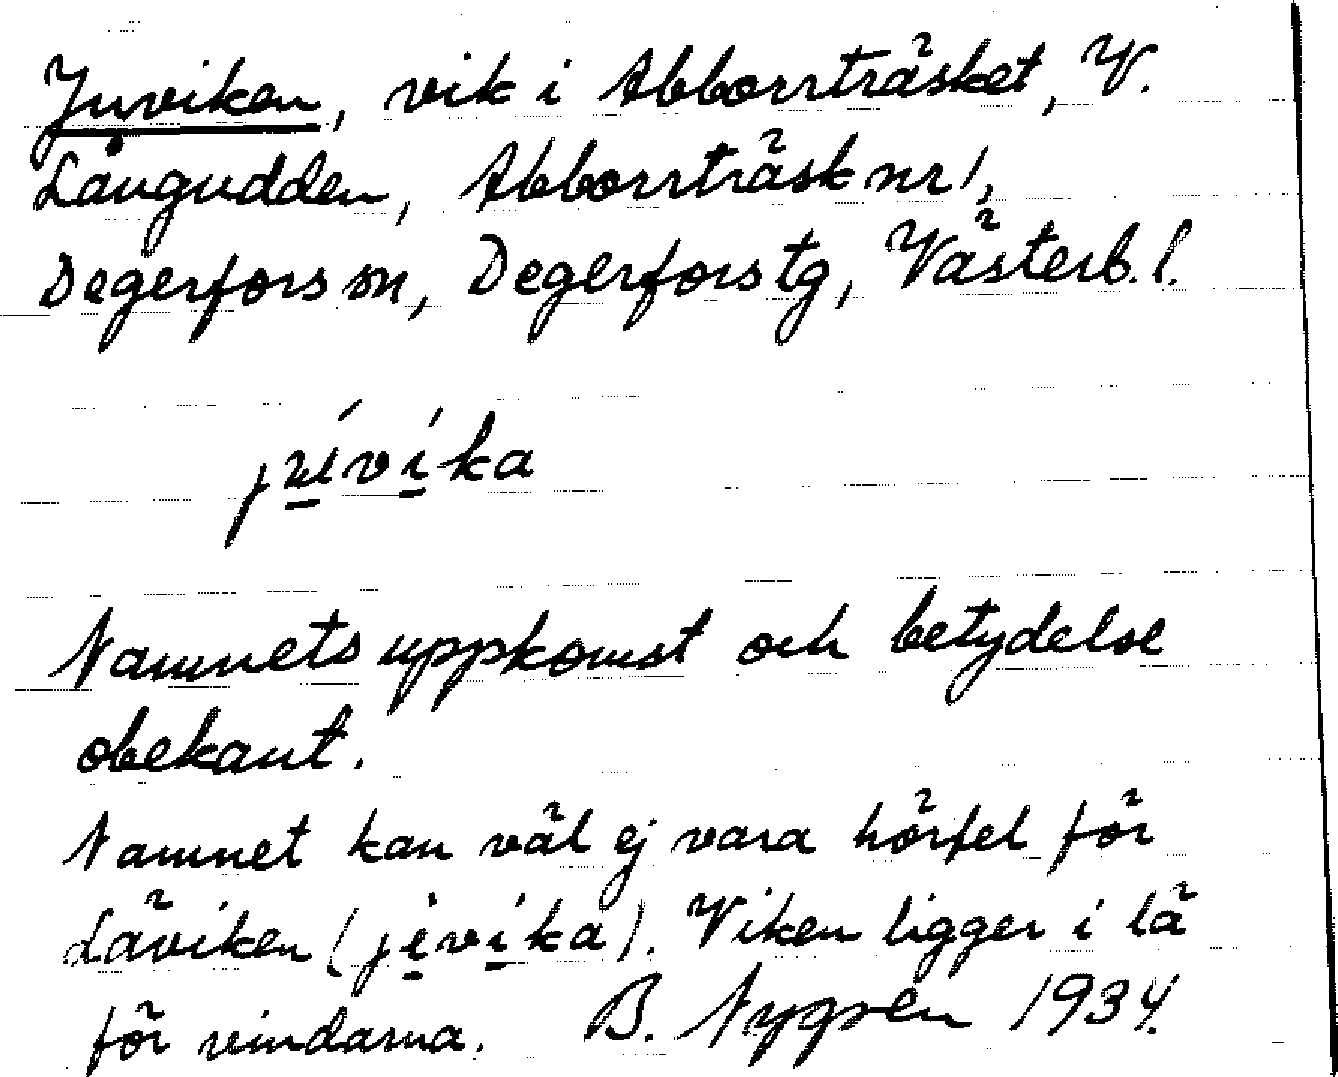 Juviken, vik i Abborrträsket, V.
Långudden, Abborrträsk nr 1,
Degerfors sn, Degerfors tg, Västerb. l.
júvíka
Namnets uppkomst och betydelse
obekant.
Namnet kan väl ej vara hörfel för
Läviken (jévíka). Viken ligger i lä
för vindarna. B. Nygren 1934.